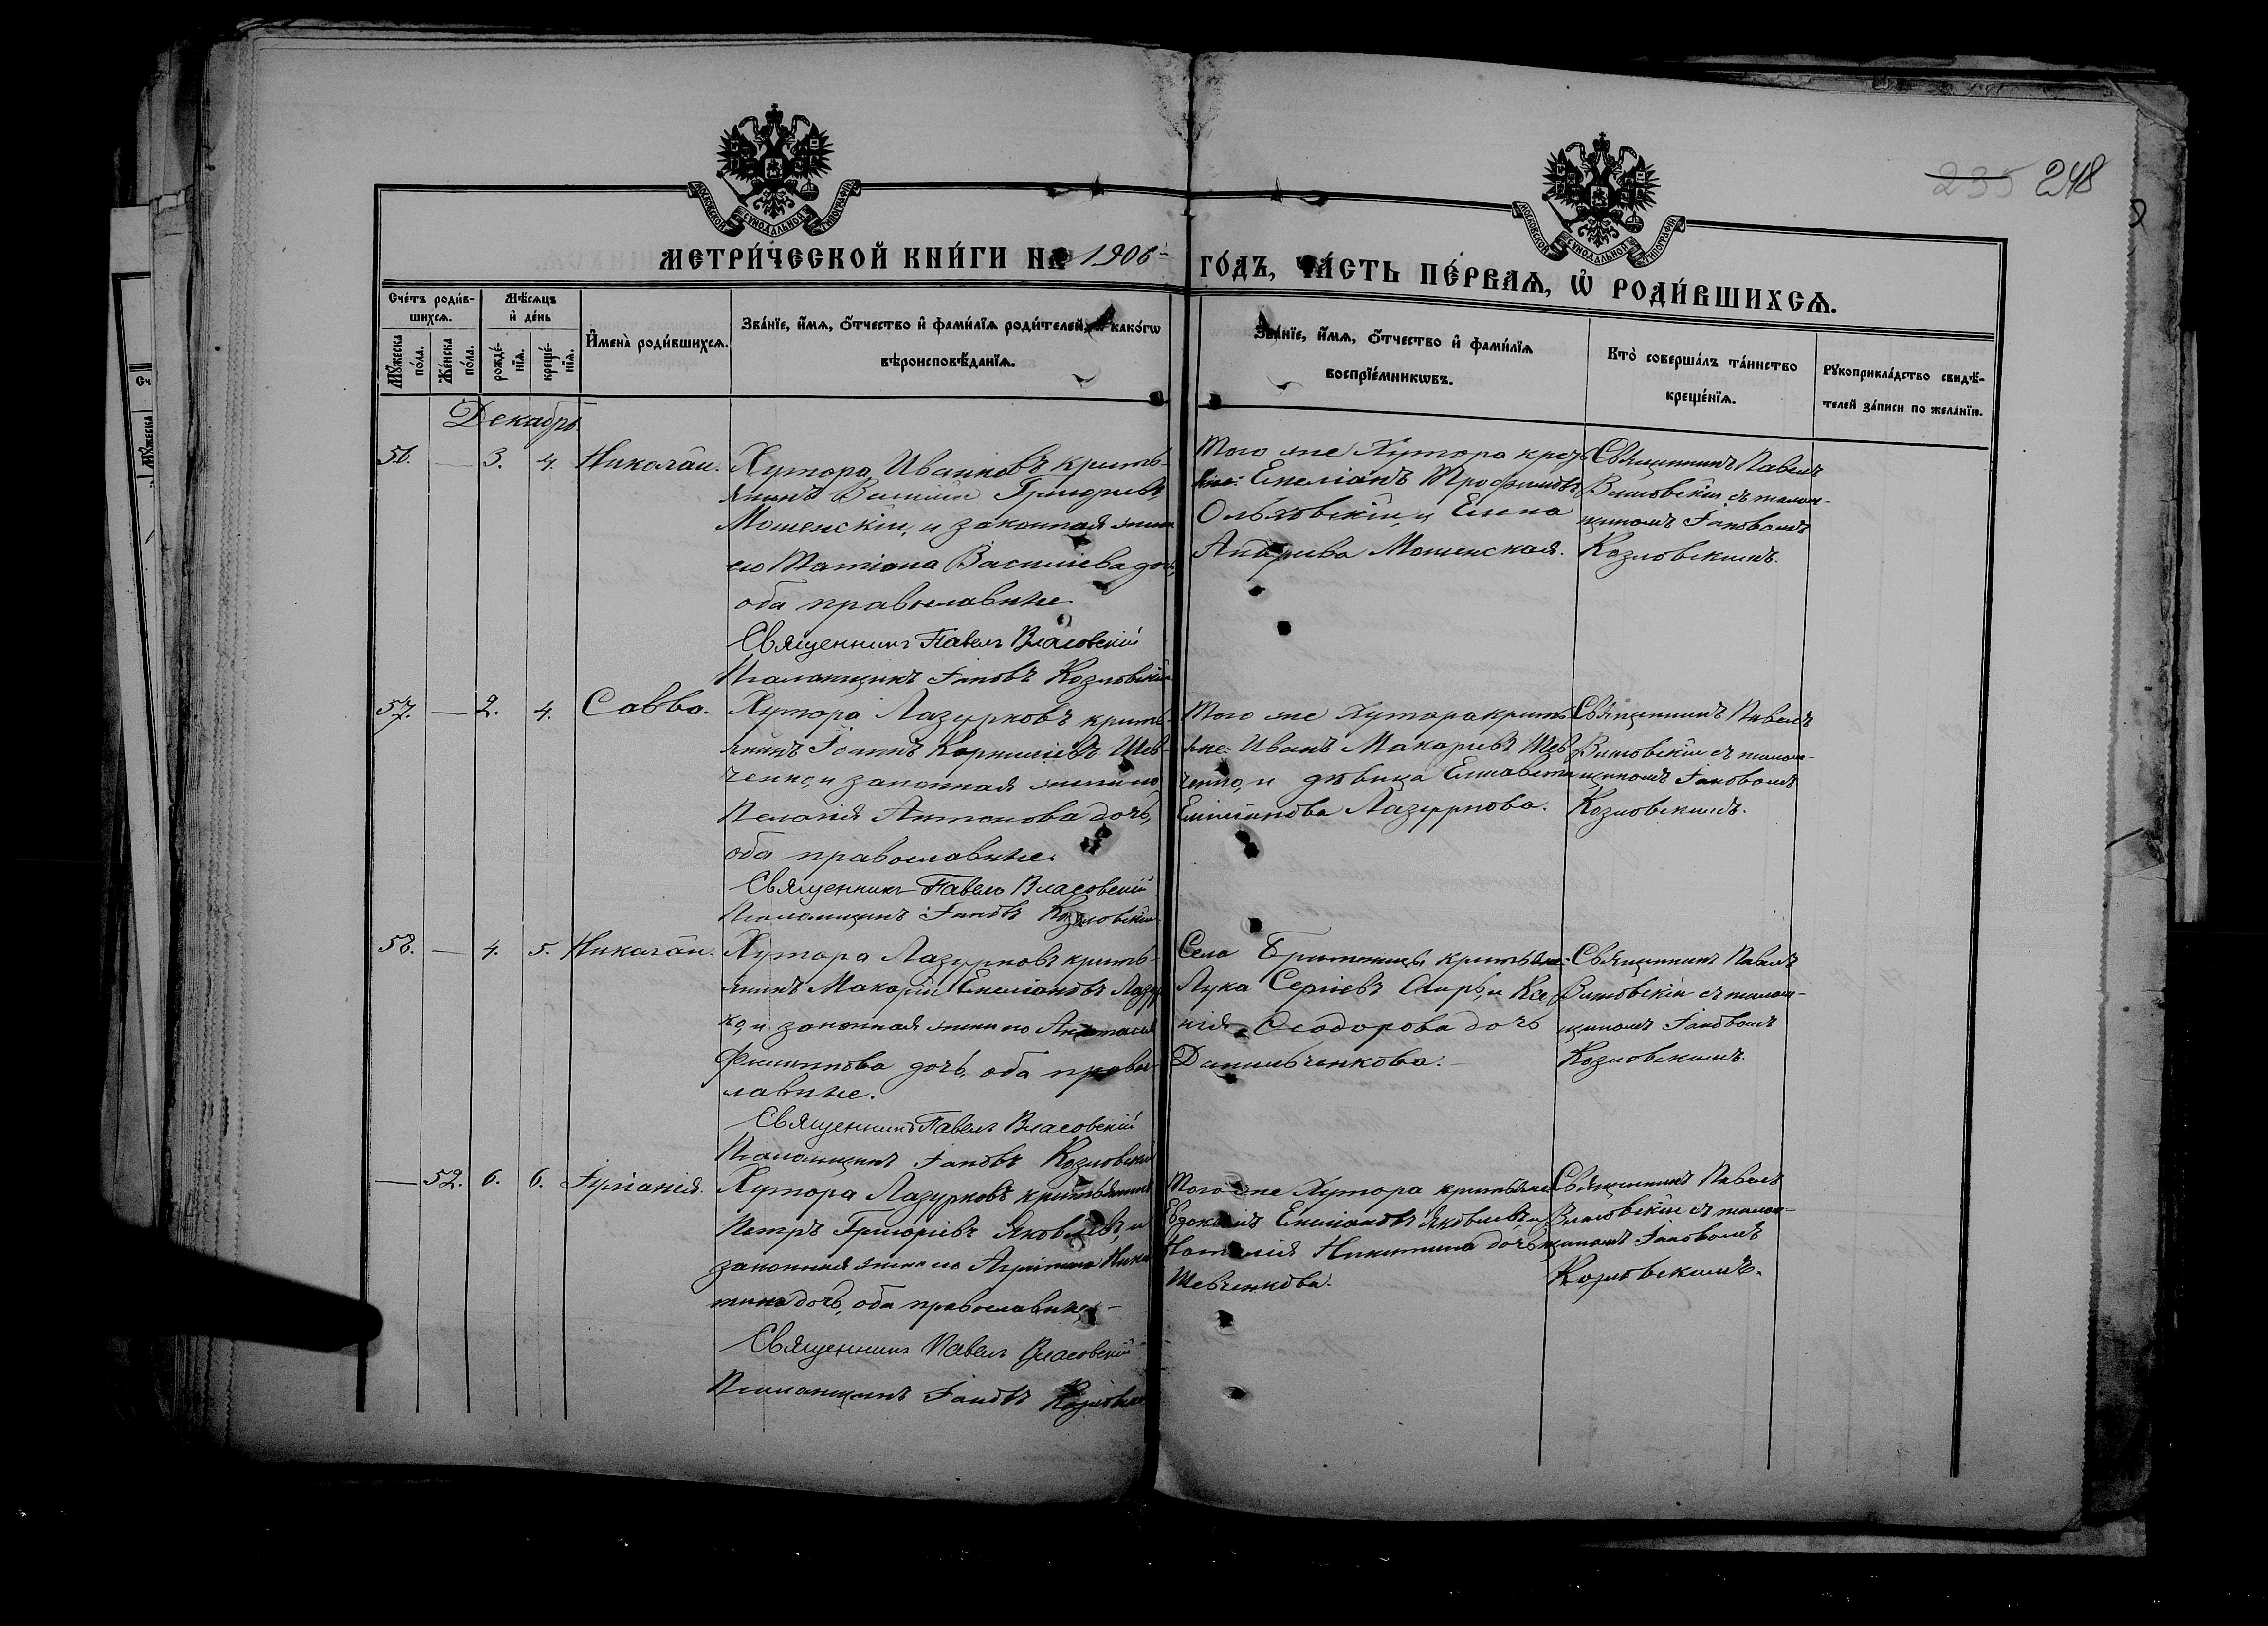 235 248
МОСКОВСКОЙ СѴНОДАЛЬНОЙ ТИПОГРАФІИ
МОСКОВСКОЙ СѴНОДАЛЬНОЙ ТИПОГРАФІИ
МЕТРИ́ЧЕСКОЙ КНИ́ГИ НА 1906 ГО́ДЪ, ЧА́СТЬ ПЕ́РВАѦ, Ѡ҆ РОДИ́ВШИХСѦ.
Сче́тъ роди́в-
шихсѧ.
Мꙋ́жеска по́ла.
Же́нска по́ла.
Мѣ́сѧцъ
и҆ де́нь
рожде́-
нїѧ.
креще́-
нїѧ.
И҆мена̀ роди́вшихсѧ.
Зва́нїе, и҆́мѧ, ѻ҆́тчество и҆ фами́лїѧ роди́телей, и҆ како́гѡ
вѣроисповѣ́данїѧ.
Зва́нїе, и҆́мѧ, ѻ҆́тчество и҆ фами́лїѧ
воспрїе́мникѡвъ.
Кто̀ соверша́лъ та́инство
креще́нїѧ.
Рꙋкоприкла́дство свидѣ́-
телей за́писи по жела́нїю.
Декабрь
56. — 3. 4. Николай.
Хутора Иванковъ кресть-
янинъ Василій Григорьевъ
Мошенскій, и законная жена
его Татіана Василіева дочь,
оба православные.
Священникъ Павелъ Власовскій
Псаломщикъ Іаковъ Козловскій
Того же Хутора крест
яне: Емеліанъ Трофимовъ
Ольховскій, и Елена
Андреева Мошенская.
Священникъ Павелъ
Власовскій съ псалом-
щикомъ Іаковомъ
Козловскимъ.
57. — 2. 4. Савва.
Хутора Лазурковъ кресть-
янинъ Іоаннъ Корниліевъ Шев-
ченко, и законная жена его
Пелагія Антонова дочь,
оба православные.
Священникъ Павелъ Власовскій
Псаломщикъ Іаковъ Козловскій
Того же Хутора кресть
яне: Иванъ Макарьевъ Шев
ченко, и дѣвица Елисавета
Емиліанова Лазуркова.
Священникъ Павелъ
Власовскій съ псалом-
щикомъ Іаковомъ
Козловскимъ.
58. — 4. 5. Николай.
Хутора Лазурковъ кресть-
янинъ Макарій Емеліановъ Лазур
ко, и законная жена его Анастасія
Филиппова дочь, оба правос-
лавные.
Священникъ Павелъ Власовскій
Псаломщикъ Іаковъ Козловскій
Села крестьяне:
Лука Сергіевъ и
Ѳеодорова дочь
Данильченкова.
Священникъ Павелъ
Власовскій съ псалом-
щикомъ Іаковомъ
Козловскимъ.
— 52. 6. 6. Іуліанія.
Хутора Лазурковъ крестьянинъ
Петръ Григоріевъ Яковлевъ, и
законная жена его Агрипина Ники
тина дочь, оба православные.
Священникъ Павелъ Власовскій
Псаломщикъ Іаковъ Козловскій
Того же Хутора крестьяне
Евдокимъ Емеліановъ Яковлевъ и
Наталія Никитина дочь
Шевченкова.
Священникъ Павелъ
Власовскій съ псалом-
щикомъ Іаковомъ
Козловскимъ.